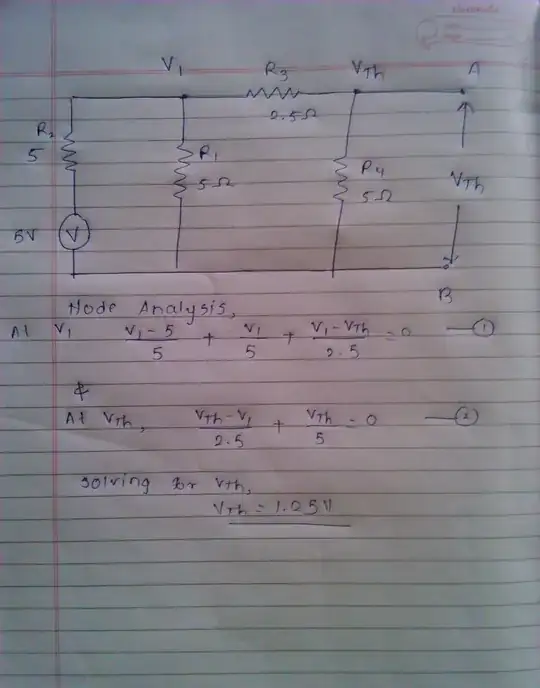 V1 R3 VTh A
2.5Ω
R2 R1 R4
5 5Ω 5Ω VTh
5V V
B
Node Analysis,
At V1 (V1 - 5)/5 + V1/5 + (V1 - VTh)/2.5 = 0 — ①
&
At VTh, (VTh - V1)/2.5 + VTh/5 = 0 — ②
solving for VTh,
VTh = 1.25V